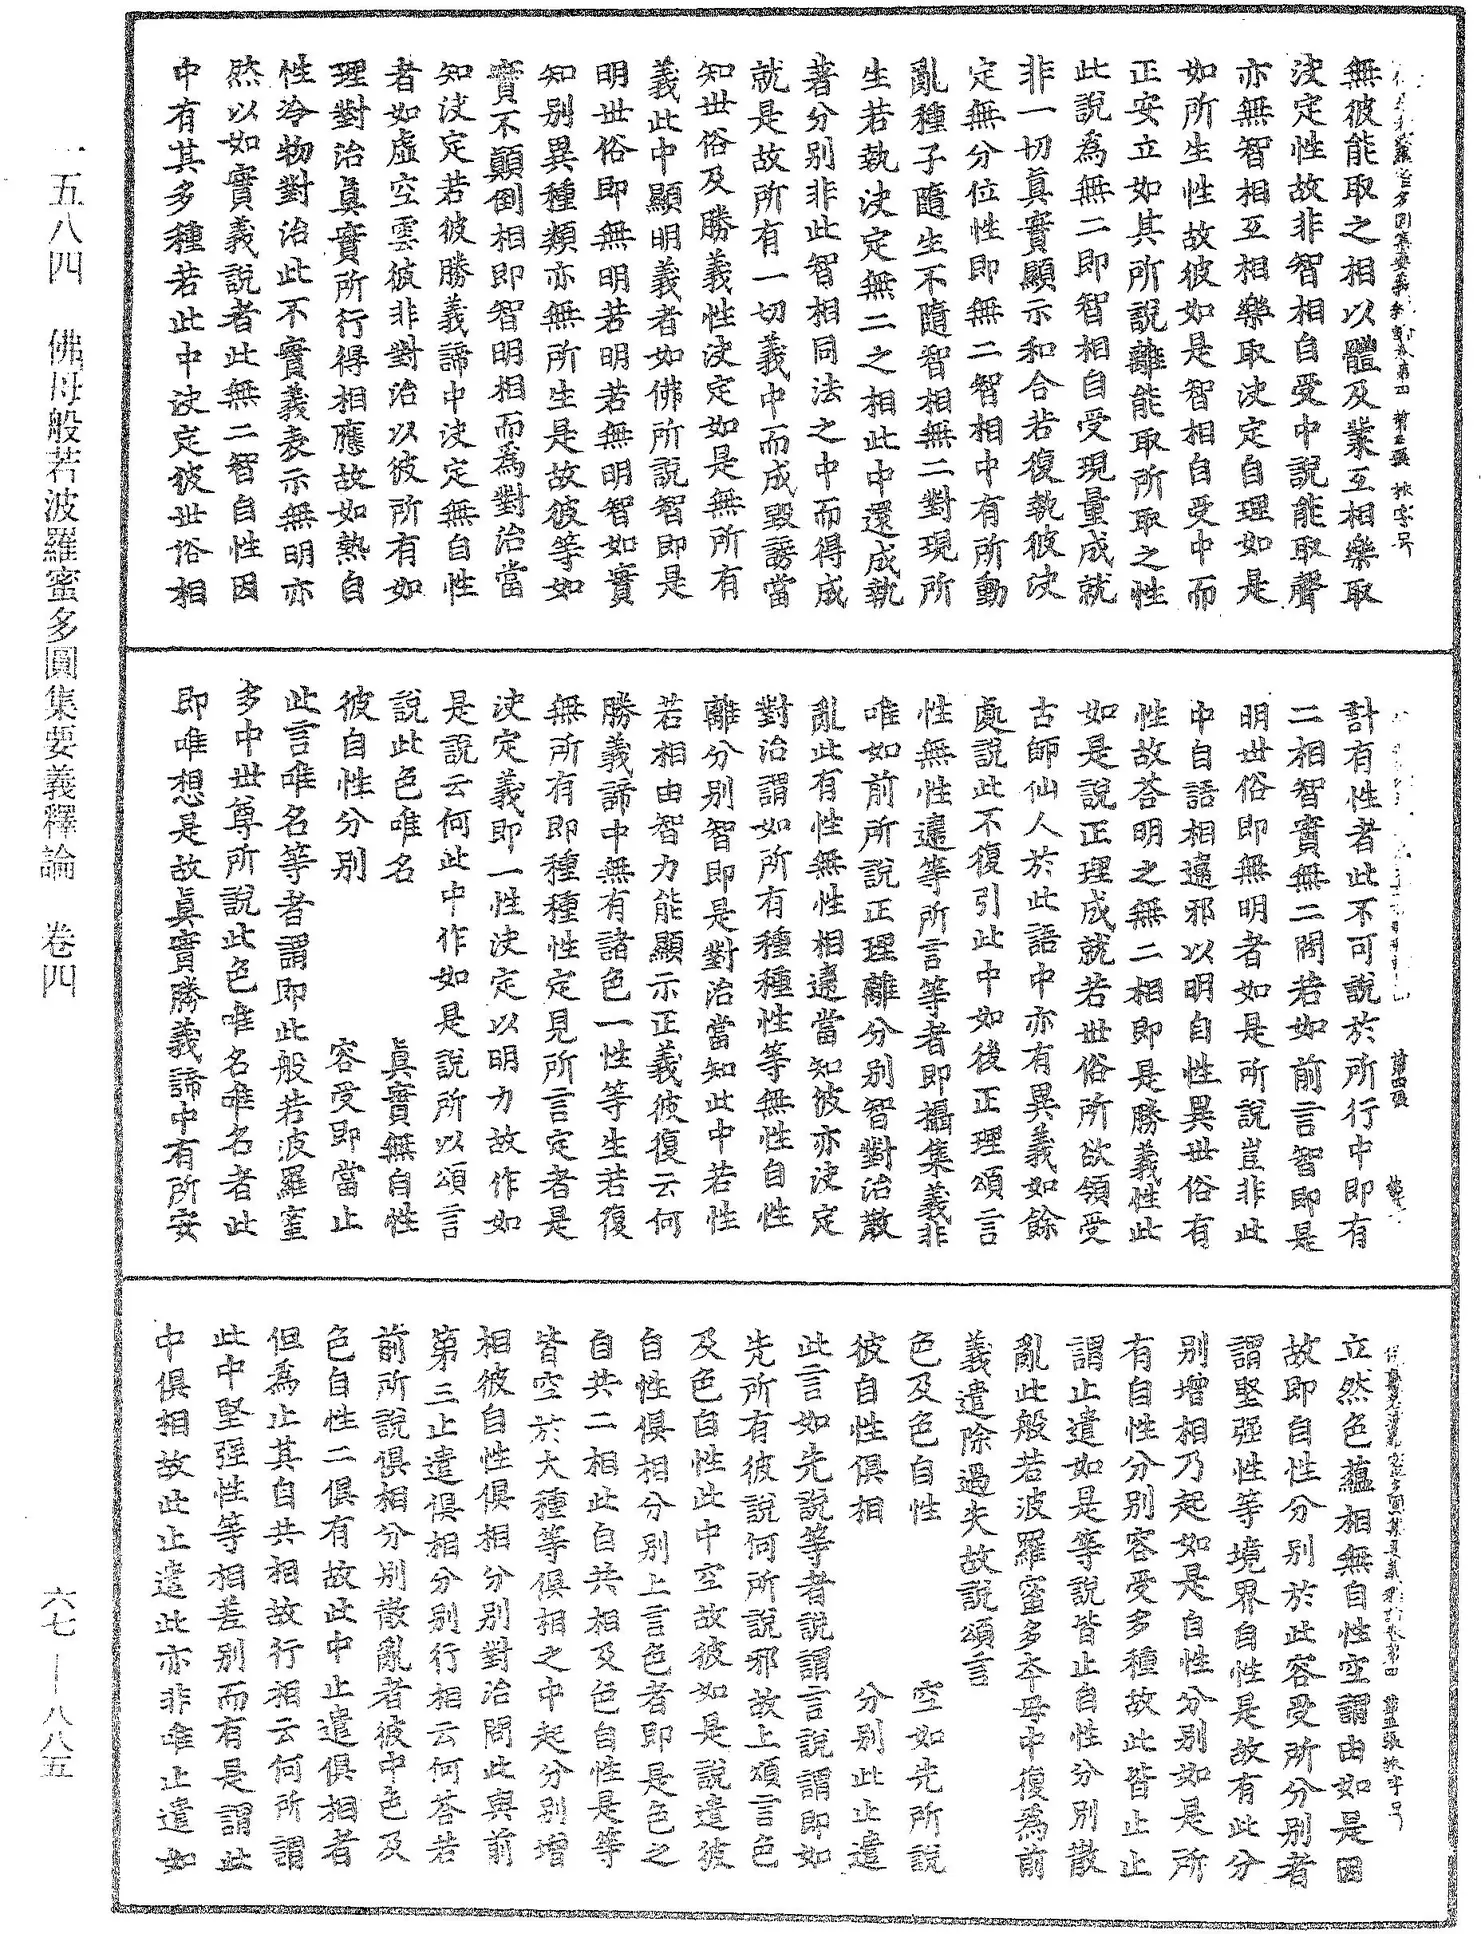 無彼能取之相以體及業互相樂取
決定性故非智相自受中說能取聲
亦無智相互相樂取決定自理如是
如所生性故彼如是智相自受中而
正安立如其所說離能取所取之性
此說為無二即智相自受現量成就
非一切真實顯示和合若復執彼決
定無分位性即無二智相中有所動
亂種子隨生不隨智相無二對現所
生若執決定無二之相此中還成執
著分別非此智相同法之中而得成
就是故所有一切義中而成毀謗當
知世俗及勝義性決定如是無所有
義此中顯明義者如佛所說智即是
明世俗即無明若明若無明智如實
知別異種類亦無所生是故彼等如
實不顛倒相即智明相而為對治當
知決定若彼勝義諦中決定無自性
者如虛空雲彼非對治以彼所有如
理對治真實所行得相應故如熱自
性冷物對治此不實義表示無明亦
然以如實義說者此無二智自性因
中有其多種若此中決定彼世俗相
計有性者此不可說於所行中即有
二相智實無二問若如前言智即是
明世俗即無明者如是所說豈非此
中自語相違邪以明自性異世俗有
性故荅明之無二相即是勝義性此
如是說正理成就若世俗所欲領受
古師仙人於此語中亦有異義如餘
處說此不復引此中如後正理頌言
性無性違等所言等者即攝集義非
唯如前所說正理離分別智對治散
亂此有性無性相違當知彼亦決定
對治謂如所有種種性等無性自性
離分別智即是對治當知此中若性
若相由智力能顯示正義彼復云何
勝義諦中無有諸色一性等生若復
無所有即種種性定見所言定者是
決定義即一性決定以明力故作如
是說云何此中作如是說所以頌言
說此色唯名　真實無自性
彼自性分別　容受即當止
此言唯名等者謂即此般若波羅蜜
多中世尊所說此色唯名唯名者此
即唯想是故真實勝義諦中有所安
立然色蘊相無自性空謂由如是因
故即自性分別於此容受所分別者
謂堅强性等境界自性是故有此分
別增相乃起如是自性分別如是所
有自性分別容受多種故此皆止止
謂止遣如是等說皆止自性分別散
亂此般若波羅蜜多本母中復為前
義遣除過失故說頌言
色及色自性　空如先所說
彼自性俱相　分別此止遣
此言如先說等者說謂言說謂即如
先所有彼說何所說邪故上頌言色
及色自性此中空故彼如是說遣彼
自性俱相分別上言色者即是色之
自共二相此自共相及色自性是等
皆空於大種等俱相之中起分別增
相彼自性俱相分別對治問此與前
第三止遣俱相分別行相云何荅若
前所說俱相分別散亂者彼中色及
色自性二俱有故此中止遣俱相者
但為止其自共相故行相云何所謂
此中堅强性等相差別而有是謂此
中俱相故此止遣此亦非唯止遣如
一五八四　佛母般若波羅蜜多圓集要義釋論　卷四
六七—八八五